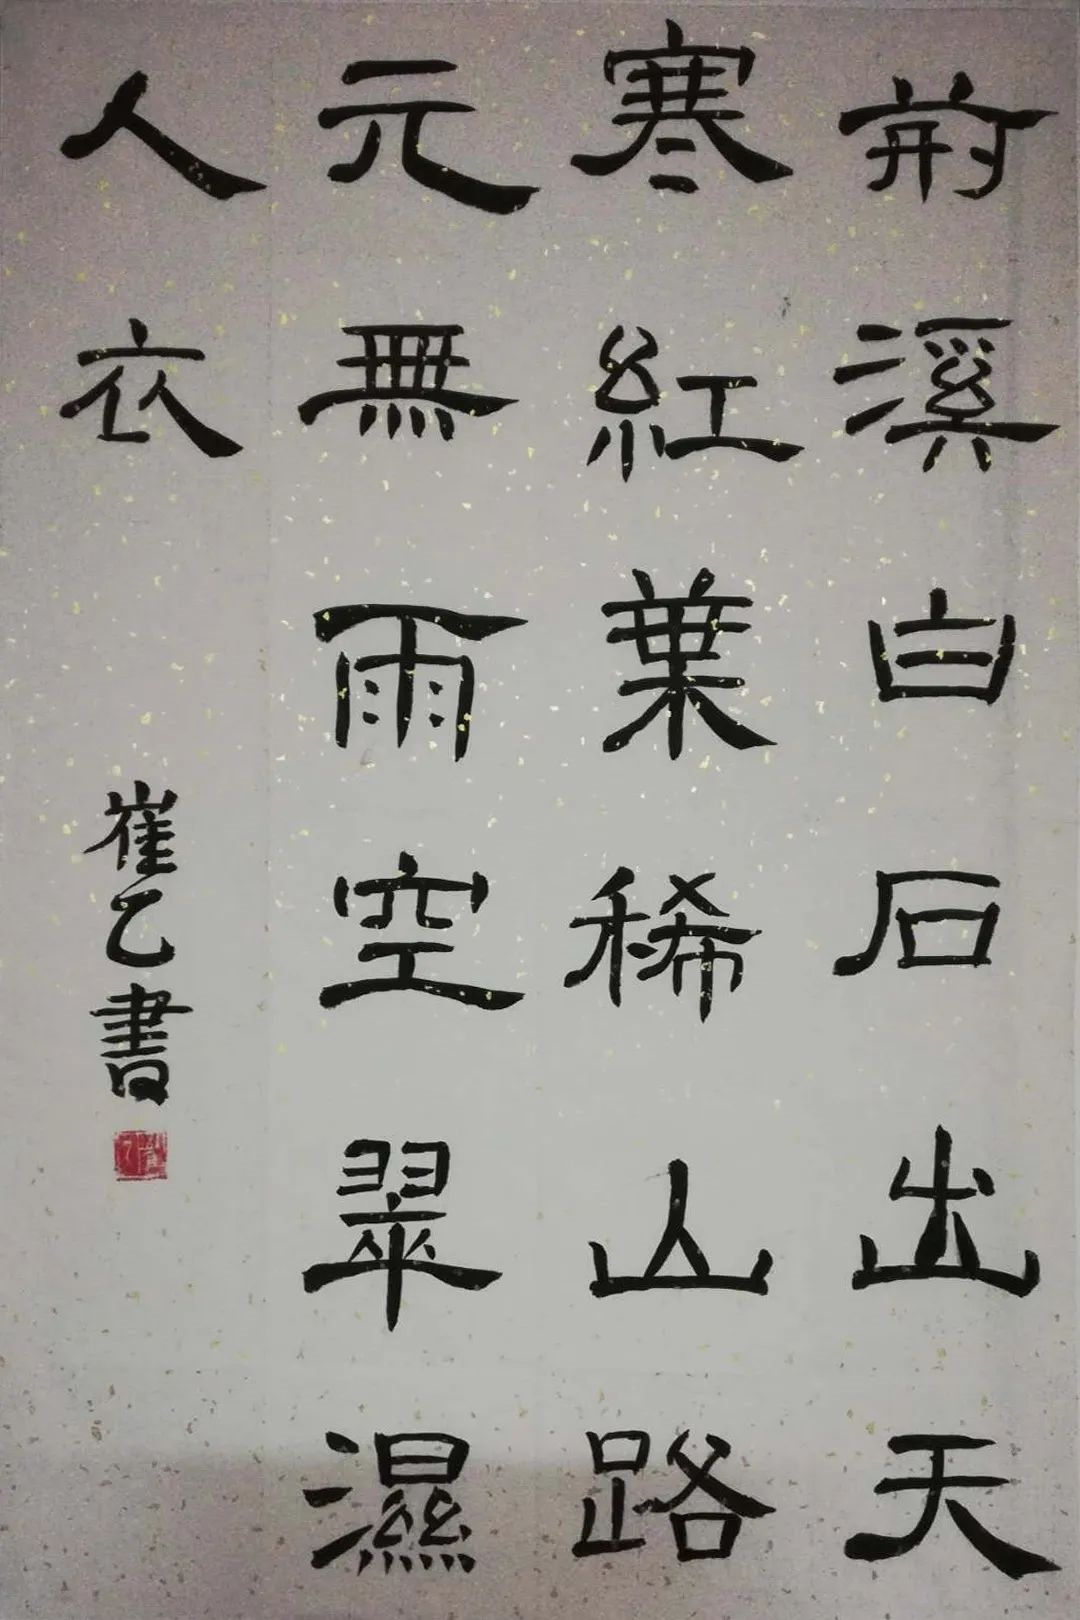 荊溪白石出天
寒紅葉稀山路
元無雨空翠濕
人衣
崔乙書